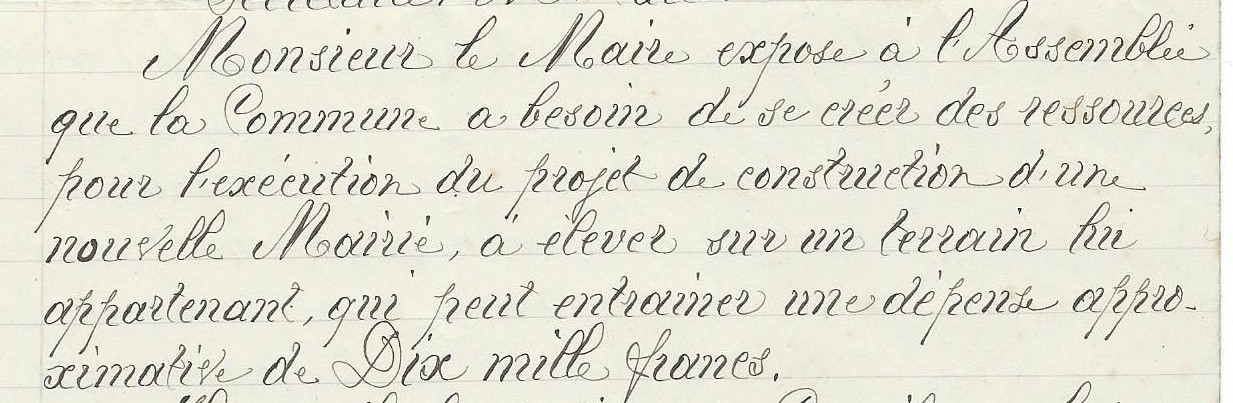 Monsieur le Maire expose à l'Assemblée
que la Commune a besoin de se créer des ressources,
pour l'exécution du projet de construction d'une
nouvelle Mairie, à élever sur un terrain lui
appartenant, qui peut entrainer une dépense appro-
ximative de Dix mille francs.